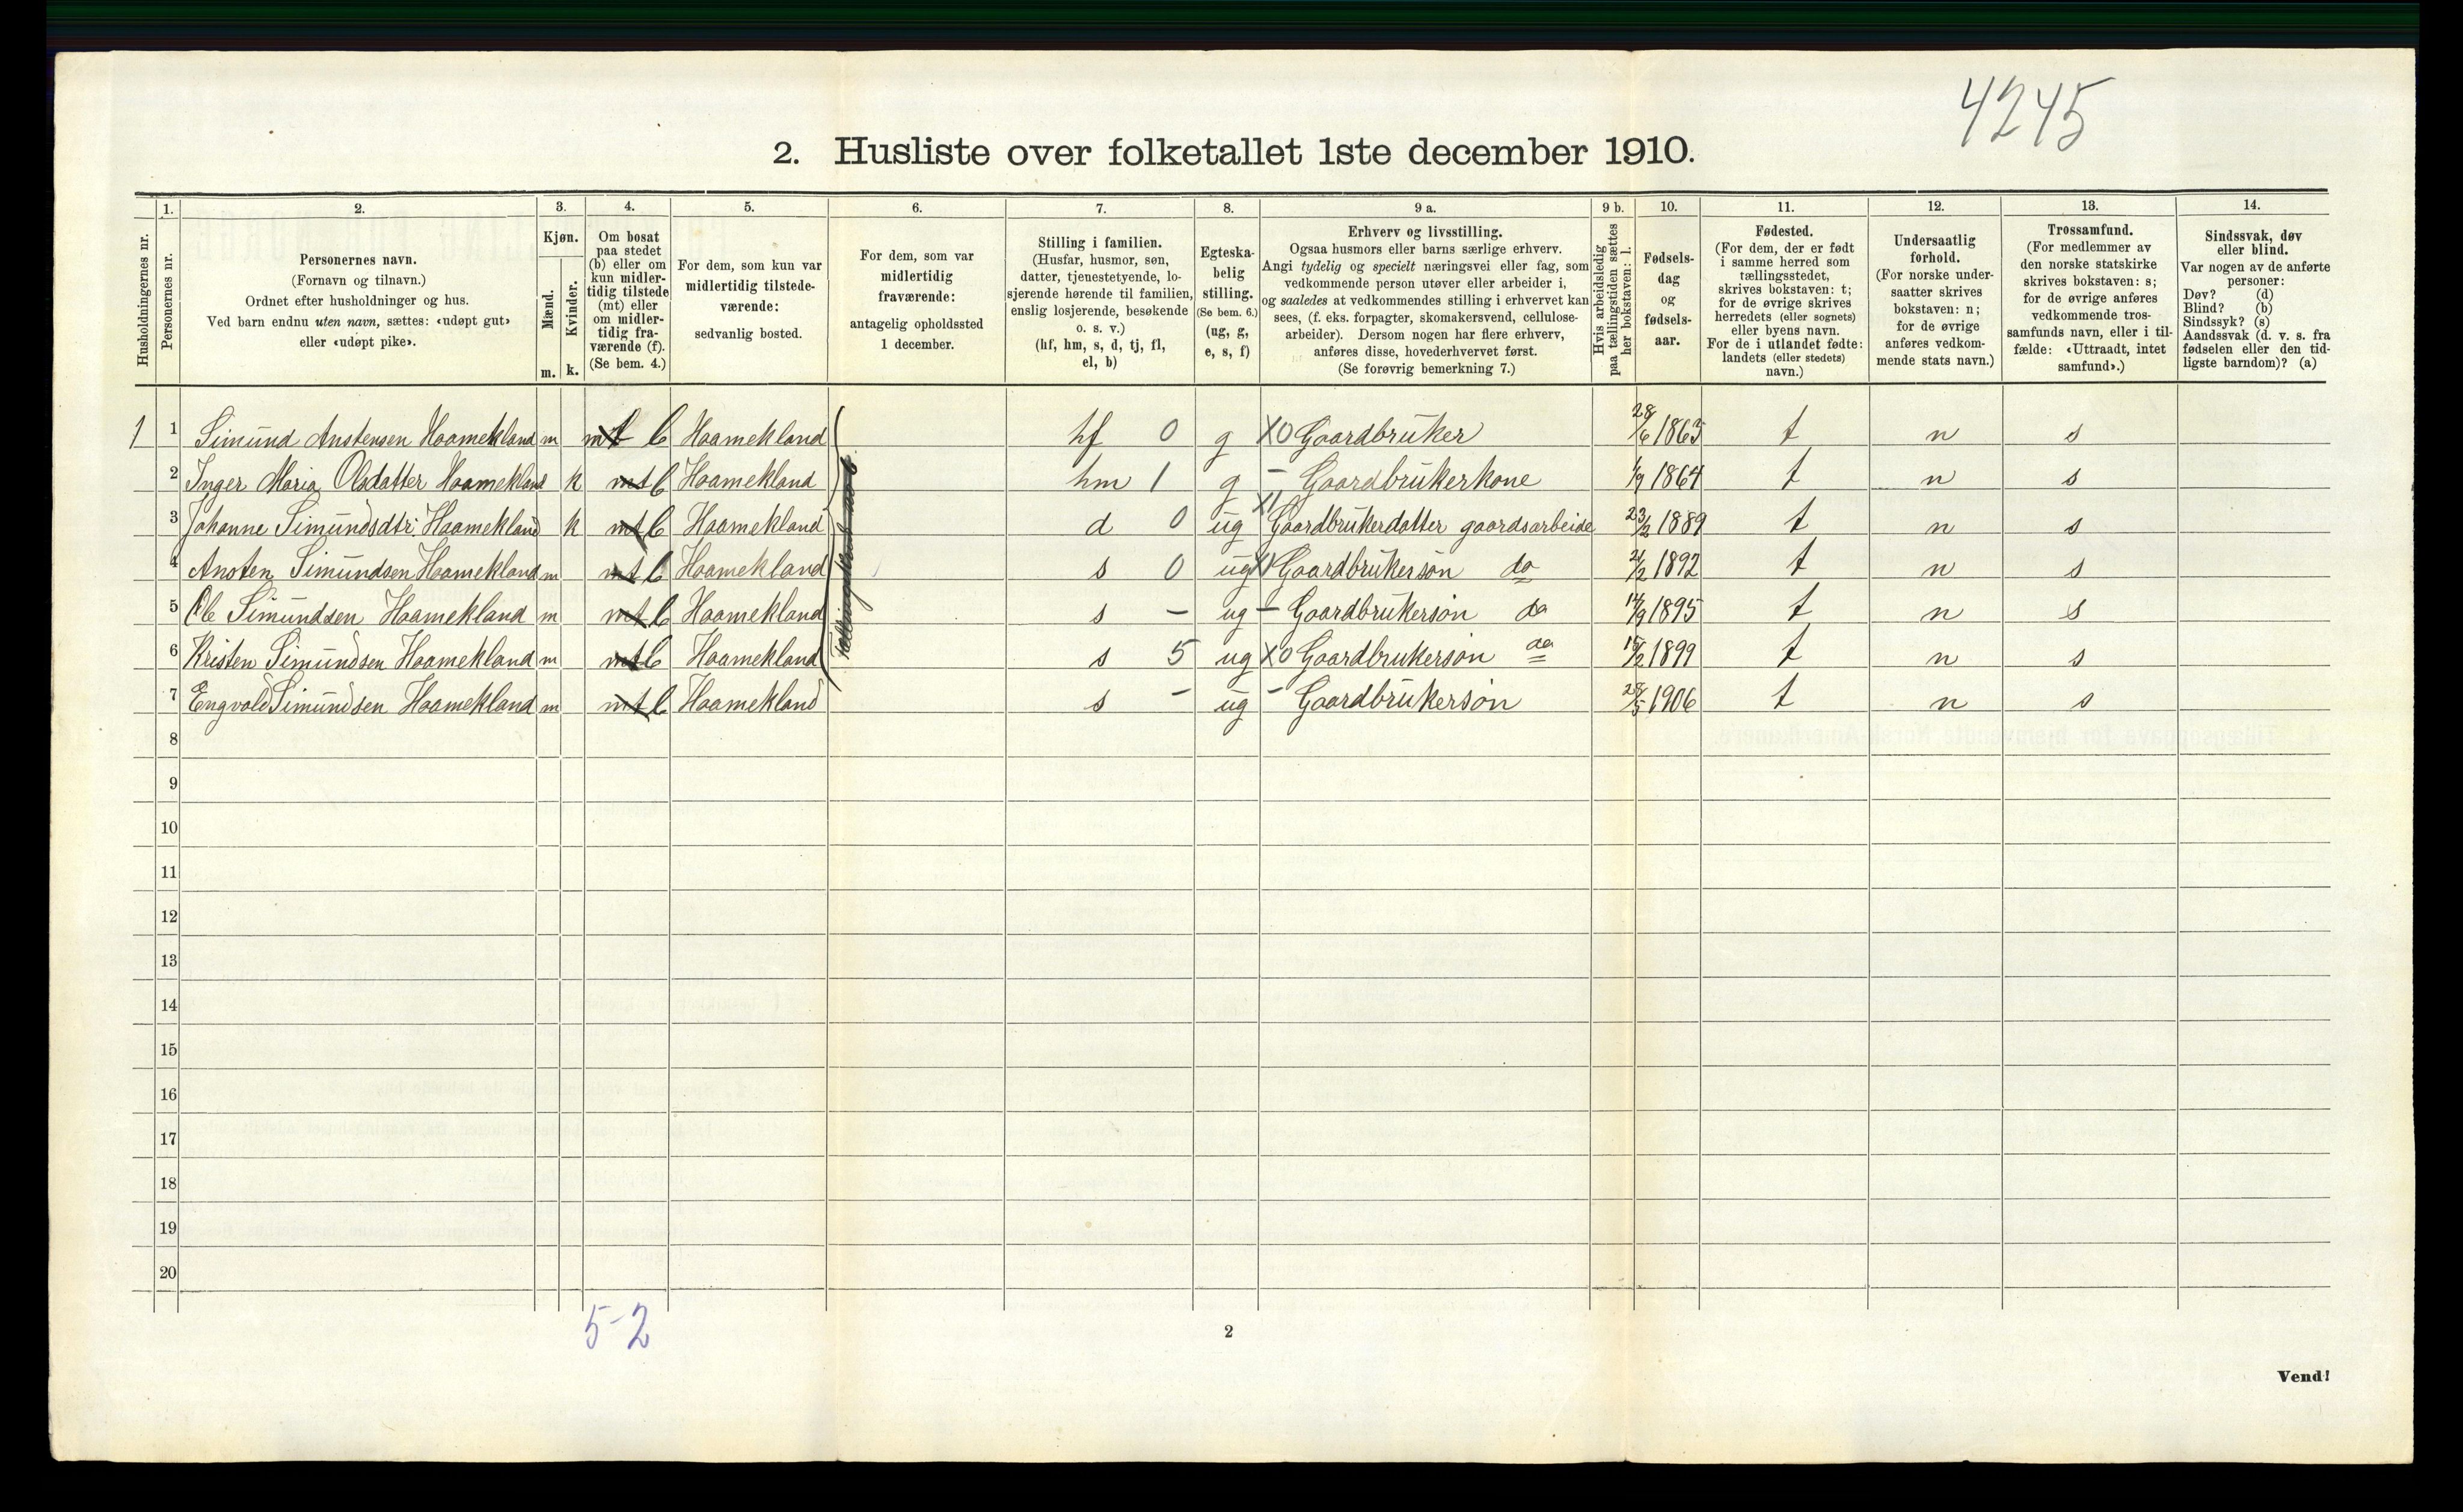 4245
2. Husliste over folketallet 1ste december 1910.
Husholdningernes nr.
1.
Personernes nr.
2.
Personernes navn.
(Fornavn og tilnavn.)
Ordnet efter husholdninger og hus.
Ved barn endnu uten navn, sættes: «udøpt gut»
eller «udøpt pike».
3.
Kjøn.
Mænd.
Kvinder.
m.
k.
4.
Om bosat
paa stedet
(b) eller om
kun midler-
tidig tilstede
(mt) eller
om midler-
tidig fra-
værende (f).
(Se bem. 4.)
5.
For dem, som kun var
midlertidig tilstede-
værende:
sedvanlig bosted.
6.
For dem, som var
midlertidig
fraværende:
antagelig opholdssted
1 december.
7.
Stilling i familien.
(Husfar, husmor, søn,
datter, tjenestetyende, lo-
sjerende hørende til familien,
enslig losjerende, besøkende
o. s. v.)
(hf, hm, s, d, tj, fl,
el, b)
8.
Egteska-
belig
stilling.
(Se bem. 6.)
(ug, g,
e, s, f)
9 a.
Erhverv og livsstilling.
Ogsaa husmors eller barns særlige erhverv.
Angi tydelig og specielt næringsvei eller fag, som
vedkommende person utøver eller arbeider i,
og saaledes at vedkommendes stilling i erhvervet kan
sees, (f. eks. forpagter, skomakersvend, cellulose-
arbeider). Dersom nogen har flere erhverv,
anføres disse, hovederhvervet først.
(Se forøvrig bemerkning 7.)
9 b.
Hvis arbeidsledig
paa tællingstiden sættes
her bokstaven: l.
10.
Fødsels-
dag
og
fødsels-
aar.
11.
Fødested.
(For dem, der er født
i samme herred som
tællingsstedet,
skrives bokstaven: t;
for de øvrige skrives
herredets (eller sognets)
eller byens navn.
For de i utlandet fødte:
landets (eller stedets)
navn.)
12.
Undersaatlig
forhold.
(For norske under-
saatter skrives
bokstaven: n;
for de øvrige
anføres vedkom-
mende stats navn.)
13.
Trossamfund.
(For medlemmer av
den norske statskirke
skrives bokstaven: s;
for de øvrige anføres
vedkommende tros-
samfunds navn, eller i til-
fælde: «Uttraadt, intet
samfund».)
14.
Sindssvak, døv
eller blind.
Var nogen av de anførte
personer:
Døv? (d)
Blind? (b)
Sindssyk? (s)
Aandssvak (d. v. s. fra
fødselen eller den tid-
ligste barndom)? (a)
1 1 Simund Anstensen Haamekland m mt b Haamekland hf 0 g X0 Gaardbruker 28/6 1863 t n s
2 Inger Maria Olsdatter Haamekland k mt b Haamekland hm 1 g - Gaardbrukerkone 1/9 1864 t n s
3 Johanne Simundsdtr. Haamekland k mt b Haamekland d 0 ug X1 Gaardbrukerdatter gaardsarbeide 23/2 1889 t n s
4 Ansten Simundsen Haamekland m mt b Haamekland s 0 ug X1 Gaardbrukersøn do 21/2 1892 t n s
5 Ole Simundsen Haamekland m mt b Haamekland s - ug - Gaardbrukersøn do 14/9 1895 t n s
6 Kristen Simundsen Haamekland m mt b Haamekland s 5 ug X0 Gaardbrukersøn do 15/2 1899 t n s
7 Engvald Simundsen Haamekland m mt b Haamekland s - ug - Gaardbrukersøn 28/5 1906 t n s
8
9
10
11
12
13
14
15
16
17
18
19
20
5-2
2
Vend!